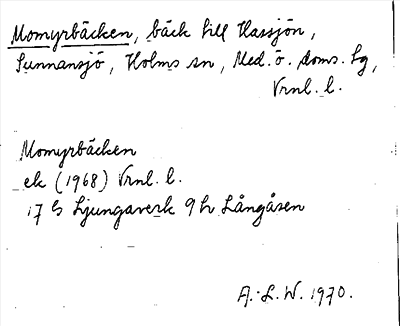 Momyrbäcken, bäck till Hassjön,
Sunnansjö, Holms sn, Med. ö. doms. sg,
Vrnl. l.
Momyrbäcken
ek (1968) Vrnl. l.
17 G Ljungaverk 9 h Långåsen
A.-L.W. 1970.